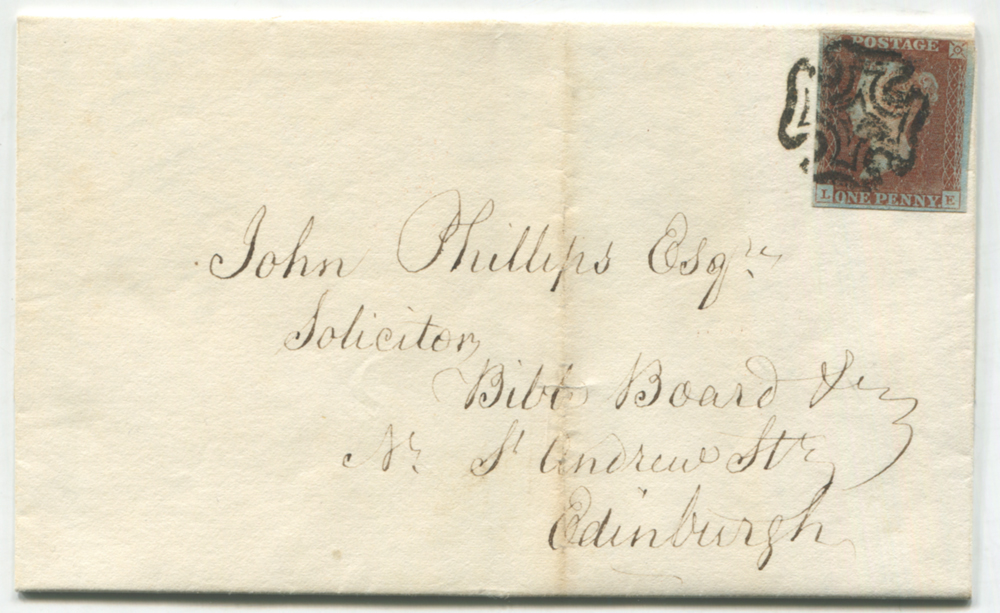 POSTAGE
L ONE PENNY E
John Phillips Esqre
Solicitor
Bible Board &c
Nr. St Andrew Str
Edinburgh